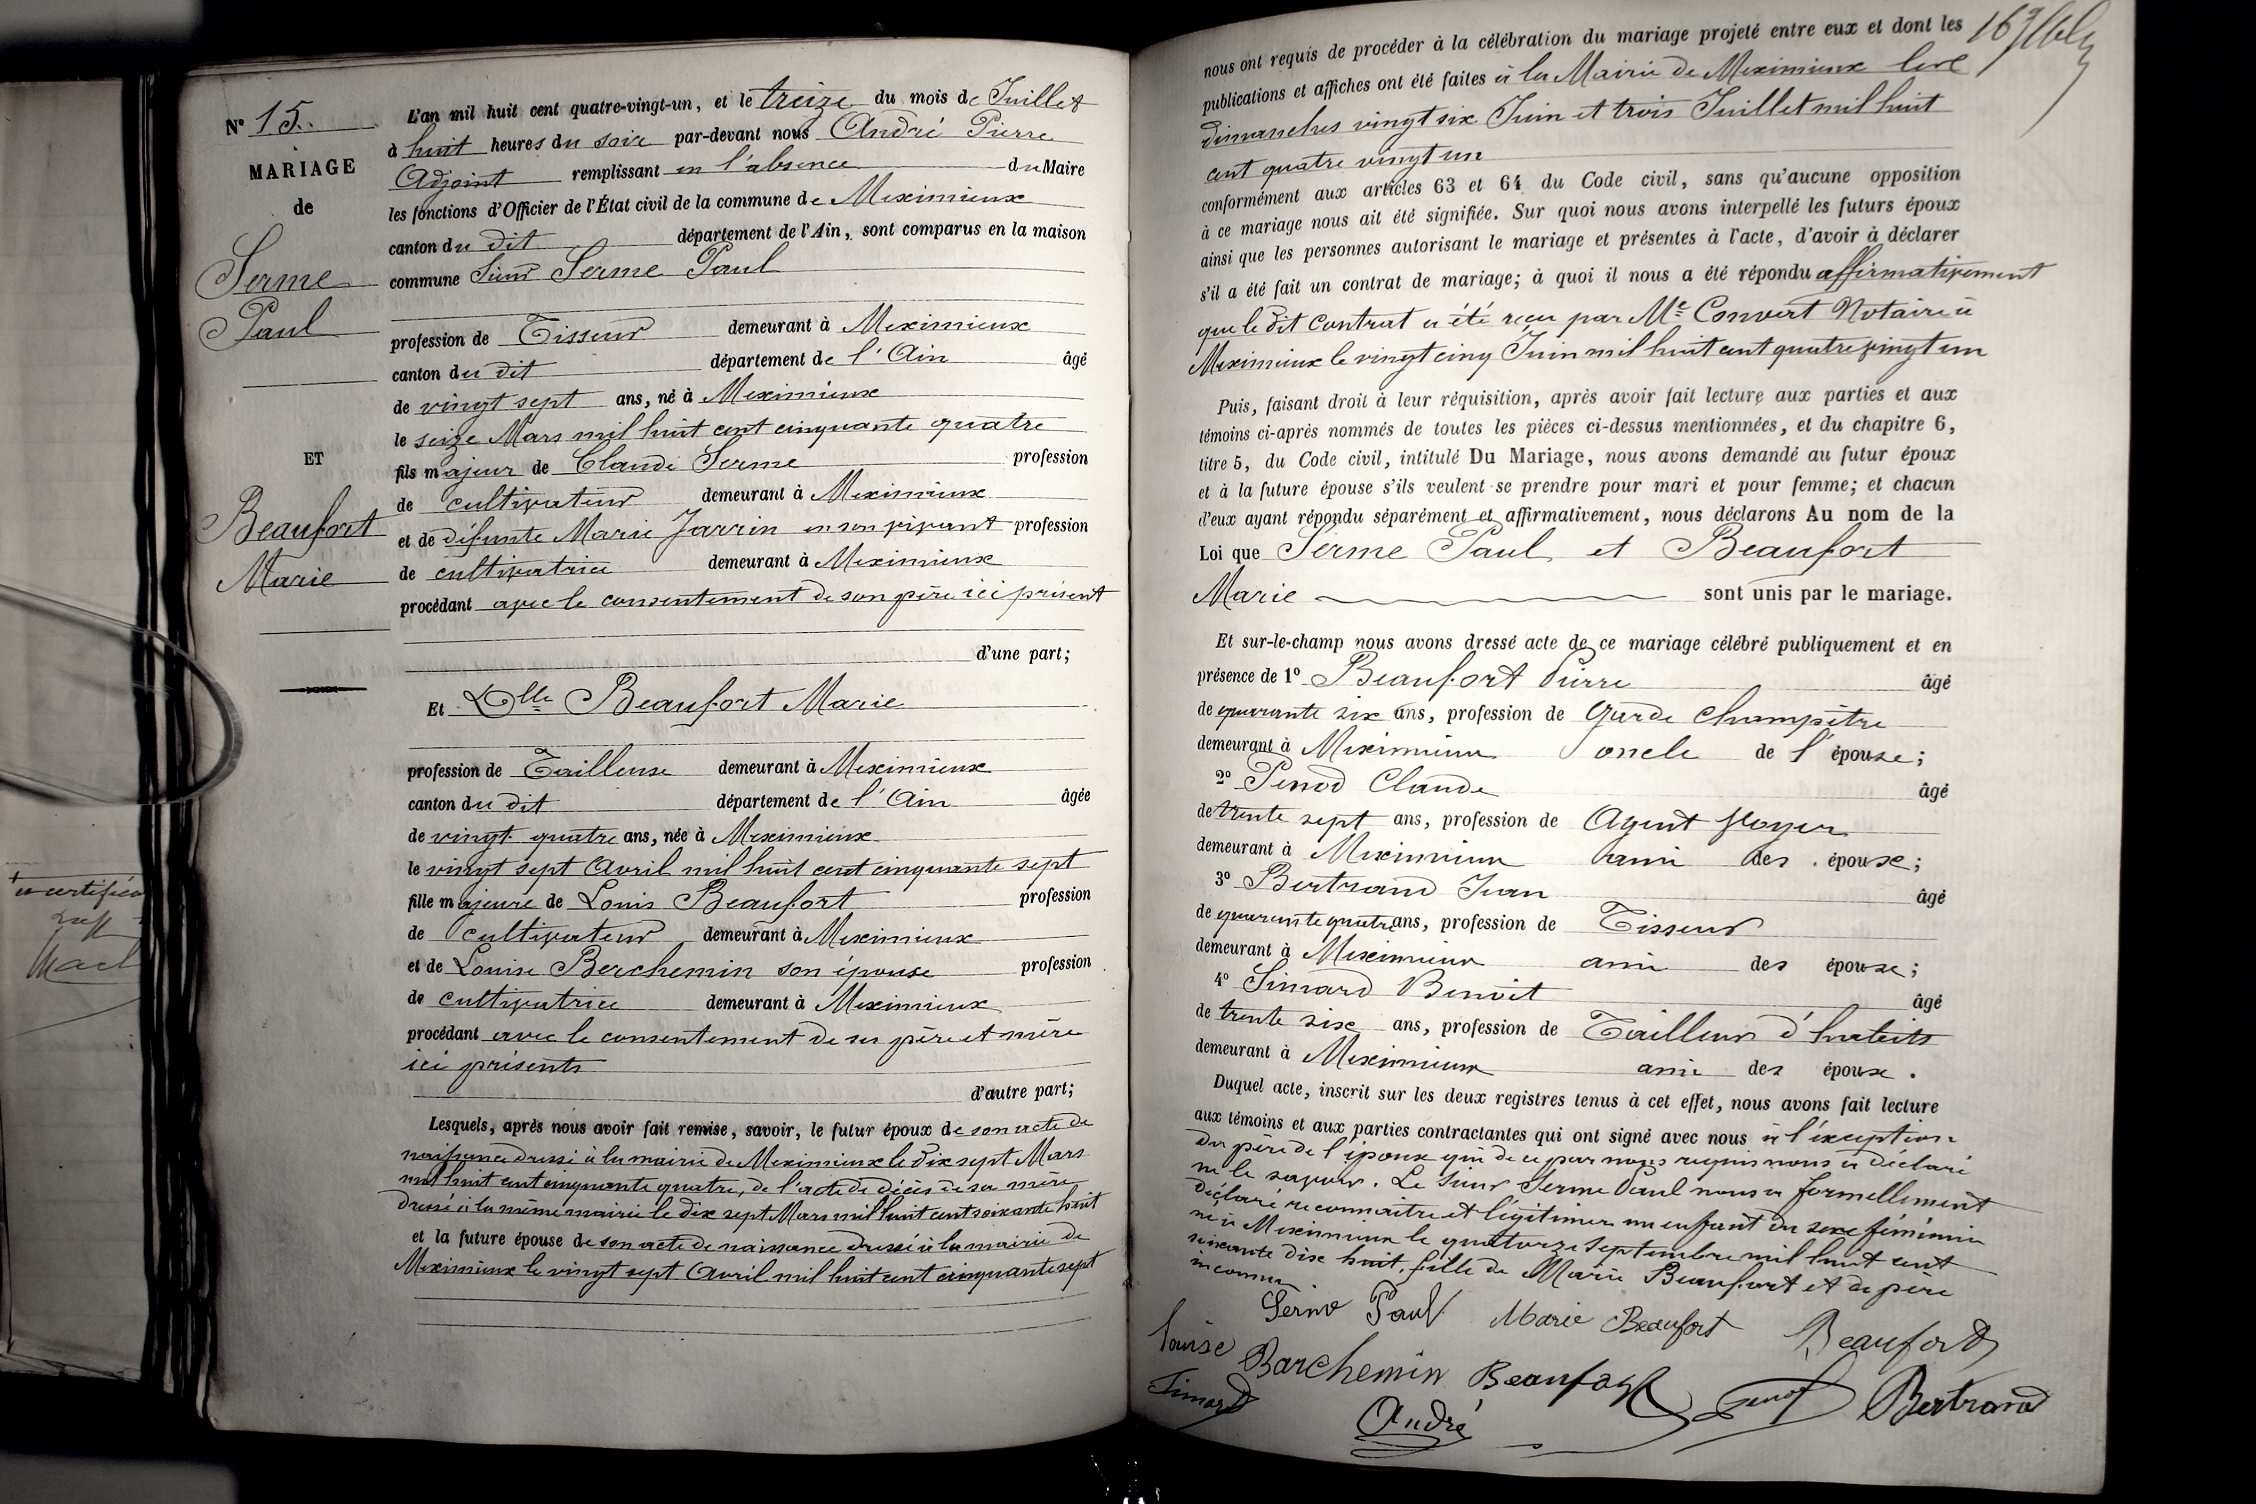 N° 15.
MARIAGE
de
Serme
Paul
ET
Beaufort
Marie
L'an mil huit cent quatre-vingt-un, et le treize du mois de Juillet
à huit heures du soir par-devant nous André Pierre
Adjoint remplissant en l'absence du Maire
les fonctions d'Officier de l'État civil de la commune de Meximieux
canton du dit département de l'Ain, sont comparus en la maison
commune Sieur Serme Paul
profession de Tisseur demeurant à Meximieux
canton du dit département de l'Ain âgé
de vingt sept ans, né à Meximieux
le seize Mars mil huit cent cinquante quatre
fils majeur de Claude Serme profession
de cultivateur demeurant à Meximieux
et de défunte Marie Jarrin en son vivant profession
de cultivatrice demeurant à Meximieux
procédant avec le consentement de son père ici présent
d'une part;
Et Dlle Beaufort Marie
profession de Tailleuse demeurant à Meximieux
canton du dit département de l'Ain âgée
de vingt quatre ans, née à Meximieux
le vingt sept Avril mil huit cent cinquante sept
fille majeure de Louis Beaufort profession
de cultivateur demeurant à Meximieux
et de Louise Berchemin son épouse profession
de cultivatrice demeurant à Meximieux
procédant avec le consentement de ses père et mère
ici présents
d'autre part;
Lesquels, après nous avoir fait remise, savoir, le futur époux de son acte de
naissance dressé à la mairie de Meximieux le dix sept Mars
mil huit cent cinquante quatre, de l'acte de décès de sa mère
dressé à la même mairie le dix sept Mars mil huit cent soixante huit
et la future épouse de son acte de naissance dressé à la mairie de
Meximieux le vingt sept Avril mil huit cent cinquante sept
nous ont requis de procéder à la célébration du mariage projeté entre eux et dont les
publications et affiches ont été faites à la Mairie de Meximieux les
dimanches vingt six Juin et trois Juillet mil huit
cent quatre vingt un
conformément aux articles 63 et 64 du Code civil, sans qu'aucune opposition
à ce mariage nous ait été signifiée. Sur quoi nous avons interpellé les futurs époux
ainsi que les personnes autorisant le mariage et présentes à l'acte, d'avoir à déclarer
s'il a été fait un contrat de mariage; à quoi il nous a été répondu affirmativement
que le dit contrat a été reçu par Me Convert Notaire à
Meximieux le vingt cinq Juin mil huit cent quatre vingt un
Puis, faisant droit à leur réquisition, après avoir fait lecture aux parties et aux
témoins ci-après nommés de toutes les pièces ci-dessus mentionnées, et du chapitre 6,
titre 5, du Code civil, intitulé Du Mariage, nous avons demandé au futur époux
et à la future épouse s'ils veulent se prendre pour mari et pour femme; et chacun
d'eux ayant répondu séparément et affirmativement, nous déclarons Au nom de la
Loi que Serme Paul et Beaufort
Marie sont unis par le mariage.
Et sur-le-champ nous avons dressé acte de ce mariage célébré publiquement et en
présence de 1° Beaufort Pierre âgé
de quarante six ans, profession de Garde champêtre
demeurant à Meximieux oncle de l'épouse;
2° Penod Claude âgé
de trente sept ans, profession de Agent Voyer
demeurant à Meximieux ami des époux;
3° Bertrand Jean âgé
de quarante quatre ans, profession de Tisseur
demeurant à Meximieux ami des époux;
4° Simard Benoit âgé
de trente six ans, profession de Tailleur d'habits
demeurant à Meximieux ami des époux.
Duquel acte, inscrit sur les deux registres tenus à cet effet, nous avons fait lecture
aux témoins et aux parties contractantes qui ont signé avec nous à l'exception
du père de l'époux qui de ce par nous requis nous a déclaré
ne le savoir. Le sieur Serme Paul nous a formellement
déclaré reconnaitre et légitimer un enfant du sexe féminin
né à Meximieux le quatorze septembre mil huit cent
soixante dix huit, fille de Marie Beaufort et de père
inconnu.
Serme Paul Marie Beaufort Beaufort
Louise Barchemin Beaufort Bertrand
Simard André